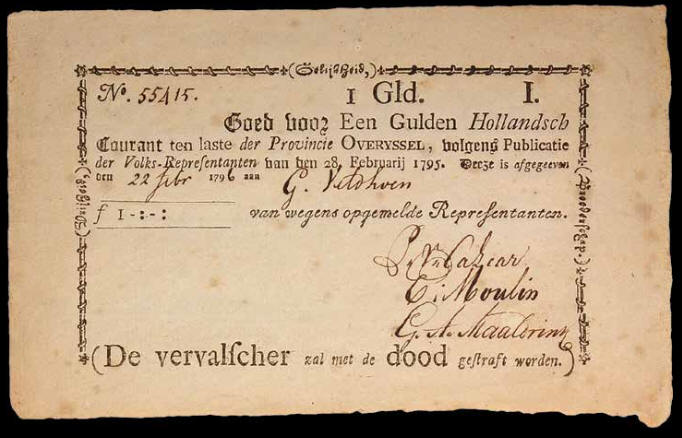 (Gelijkheid,)
No. 55415. 1 Gld. I.
Goed voor Een Gulden Hollandsch
Courant ten laste der Provincie OVERYSSEL, volgens Publicatie
der Volks-Repreſentanten van den 28. Februarij 1795. Deeze is afgegeeven
den 22 febr 1796 aan G. Veldhoen
f 1-:-:
van wegens opgemelde Repreſentanten.
C: Moulin
(De vervalſcher zal met de dood geſtraft worden.)
(Broederſchap.)